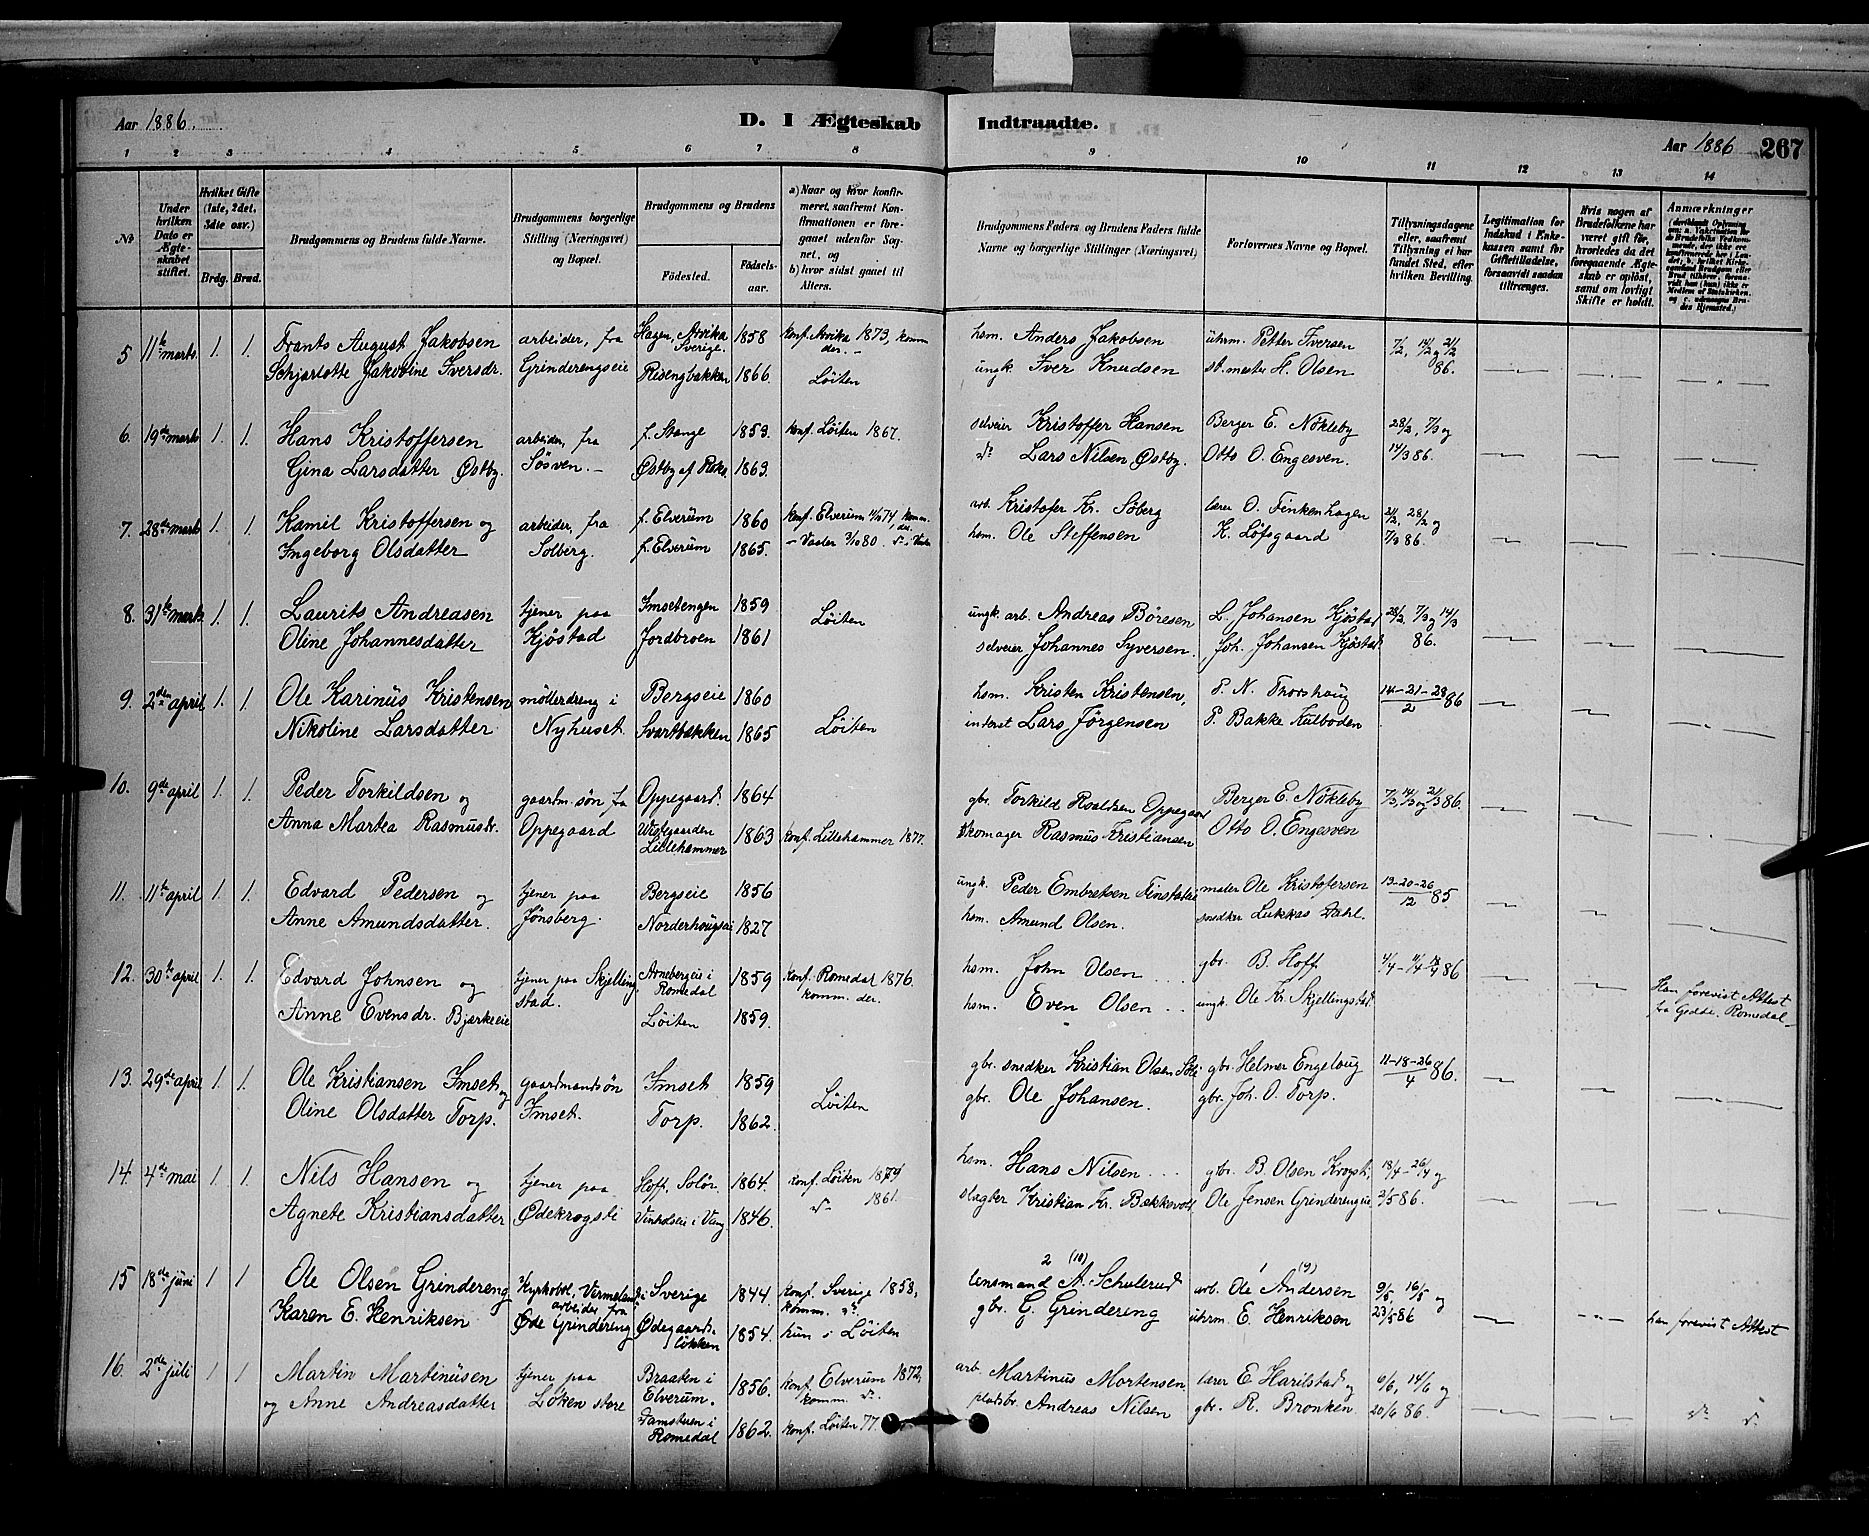 Aar 1886.
D. I Ægteskab Indtraadte.
Aar 1886 267
1 2 3 4 5 6 7 8 9 10 11 12 13 14
No
Under hvilken Dato er Ægteskabet stiftet.
Hvilket Gifte (1ste, 2det, 3die osv.)
Brdg. Brud.
Brudgommens og Brudens fulde Navne.
Brudgommens borgerlige Stilling (Næringsvei) og Bopæl.
Brudgommens og Brudens
Födested.
Födselsaar.
a) Naar og hvor konfirmeret, saafremt Konfirmationen er foregaaet udenfor Sognet, og
b) hvor sidst gaaet til Alters.
Brudgommens Faders og Brudens Faders fulde Navne og borgerlige Stillinger (Næringsvei)
Forlovernes Navne og Bopæl.
Tillysningsdagene eller, saafremt Tillysning ei har fundet Sted, efter hvilken Bevilling.
Legitimation for Indskud i Enkekassen samt for Giftetilladelse, forsaavidt saadan tiltrænges.
Hvis nogen af Brudefolkene har været gift för, hvorledes da det foregaaende Ægteskab er oplöst, samt om lovligt Skifte er holdt.
Anmærkninger
5 11te marts 1. 1. Frants August Jakobsen arbeider, fra Hagen, Arvika Sverige. 1858 konf. Arvika 1873, komm. der. – hsm. Anders Jakobsen uhrm. Petter Iversen 7/2, 14/2 og 21/2
Schjarlotte Jakobine Iversdr. Grinderengseie Risengbakken 1866. Löiten ungk. Iver Knudsen st.mester H. Olsen 86.
6. 19de marts 1. 1. Hans Kristoffersen arbeider, fra f. Stange 1853. konf. Löiten 1867. selveier Kristoffer Hansen Berger E. Nökleby 28/2, 7/3 og
Gina Larsdatter Østby. Sösven. – Østby af Roko. 1863. do Lars Nilsen Østby. Otto O. Engesven. 14/3 86.
7. 28de marts 1. 1. Kamil Kristoffersen og arbeider, fra f. Elverum 1860 konf. Elverum 74, komm. der. arb. Kristofer Kr. Söberg lærer O. Finkenhagen 21/2, 28/2 og
Ingeborg Olsdatter Solberg. f. Elverum 1865. – Vaaler 3/10 80. hsm. Ole Steffensen K. Löfsgaard 7/3 86.
8. 31te marts 1. 1. Laurits Andreasen tjener paa Imsetengen 1859 Löiten ungk. arb. Andreas Böresen L. Johansen Kjöstad 28/2, 7/3 og 14/3
Oline Johannesdatter Kjöstad Jordbroen 1861 selveier Johannes Syversen. Joh. Johansen Kjöstad. 86.
9. 2den april 1. 1. Ole Karinus Kristensen möllerdreng i Bergseie 1860 Löiten hsm. Kristen Kristensen, P. N. Thorshaug 14-21-28/2 86
Nikoline Larsdatter Nyhuset. Svartbakken 1865 inderst Lars Jörgensen P. Bakke Kulboden
10. 9de april 1. 1. Peder Torkildsen og gaardm.sön fra Oppegaard. 1864 gbr. Torkild Roaldsen Oppegaard Berger E. Nökleby 7/3, 14/3 og 21/3 86.
Anna Martea Rasmusdr. Oppegaard Vestegaarden Lillehammer 1863 konf. Lillehammer 1877. skomager Rasmus Kristiansen Otto O. Engesven
11. 11te april 1. 1. Edvard Pedersen og tjener paa Bergseie 1856 ungk. Peder Embretsen Finstadeie maler Ole Kristofersen 13-20-26/12 85
Anne Amundsdatter. Jönsberg. Norderhougseie 1827 hsm. Amund Olsen. snedker Lukkas Dahl.
12. 30te april 1. 1. Edvard Johnsen og tjener paa Skjellingstad. Arnebergeie i Romedal 1859 konf. Romedal 1876. komm. der. hsm. John Olsen gbr. B. Hoff 4/4-11/4 18/4 86 Han forevist Attest
Anne Evensdr. Bjerkeeie Löiten 1859. hsm. Even Olsen ungk. Ole Kr. Skjellingstad fra Gedde. Romedal –
13. 29de april 1. 1. Ole Kristiansen Imset og gaardmandsön Imset 1859 Löiten gbr. snedker Kristian Olsen gbr. Helmer Engelaug 11-18-26/4 86.
Oline Olsdatter Torp. Imset. Torp. 1862. gbr. Ole Johansen. gbr. Joh. O. Torp.
14. 4de mai 1 1 Nils Hansen og tjener paa Hoff. Solör. 1864. konf. Löiten 1879 hsm. Hans Nilsen gbr. B. Olsen Krogsti, 18/4-26/4 og
Agnete Kristiansdatter Ødekrogsti Vinholseie i Vang 1846. do 1861. slagter Kristian Kr. Bakkevold Ole Jensen Grinderengeie 2/5 86.
15 18de juni 1 1 Ole Olsen Grindereng Kyrkobol, Vermeland arbeider fra Sverige 1844. konf. Sverige 1858, komm. do. 2 (10) lensmand A. Schulerud 1 (9) arb. Ole Andersen 9/5, 16/5 og
Karen E. Henriksen Øde Grindereng Ødegaardslökken 1854. hun i Löiten gbr. G. Grindereng uhrm. E. Henriksen 23/5 86 han forevist Attest
16. 2den juli 1 1 Martin Martinusen tjener paa Braaten i Elverum. 1856. konf. Elverum 1872, komm. do. arb. Martinus Mortensen lærer E. Harilstad og 6/6, 14/6 og
og Anne Andreasdatter Löken store Damstuen i Romedal 1862. konf. Löiten 77. pladsbr. Andreas Nilsen gbr. R. Bronken. 20/6 86. do do